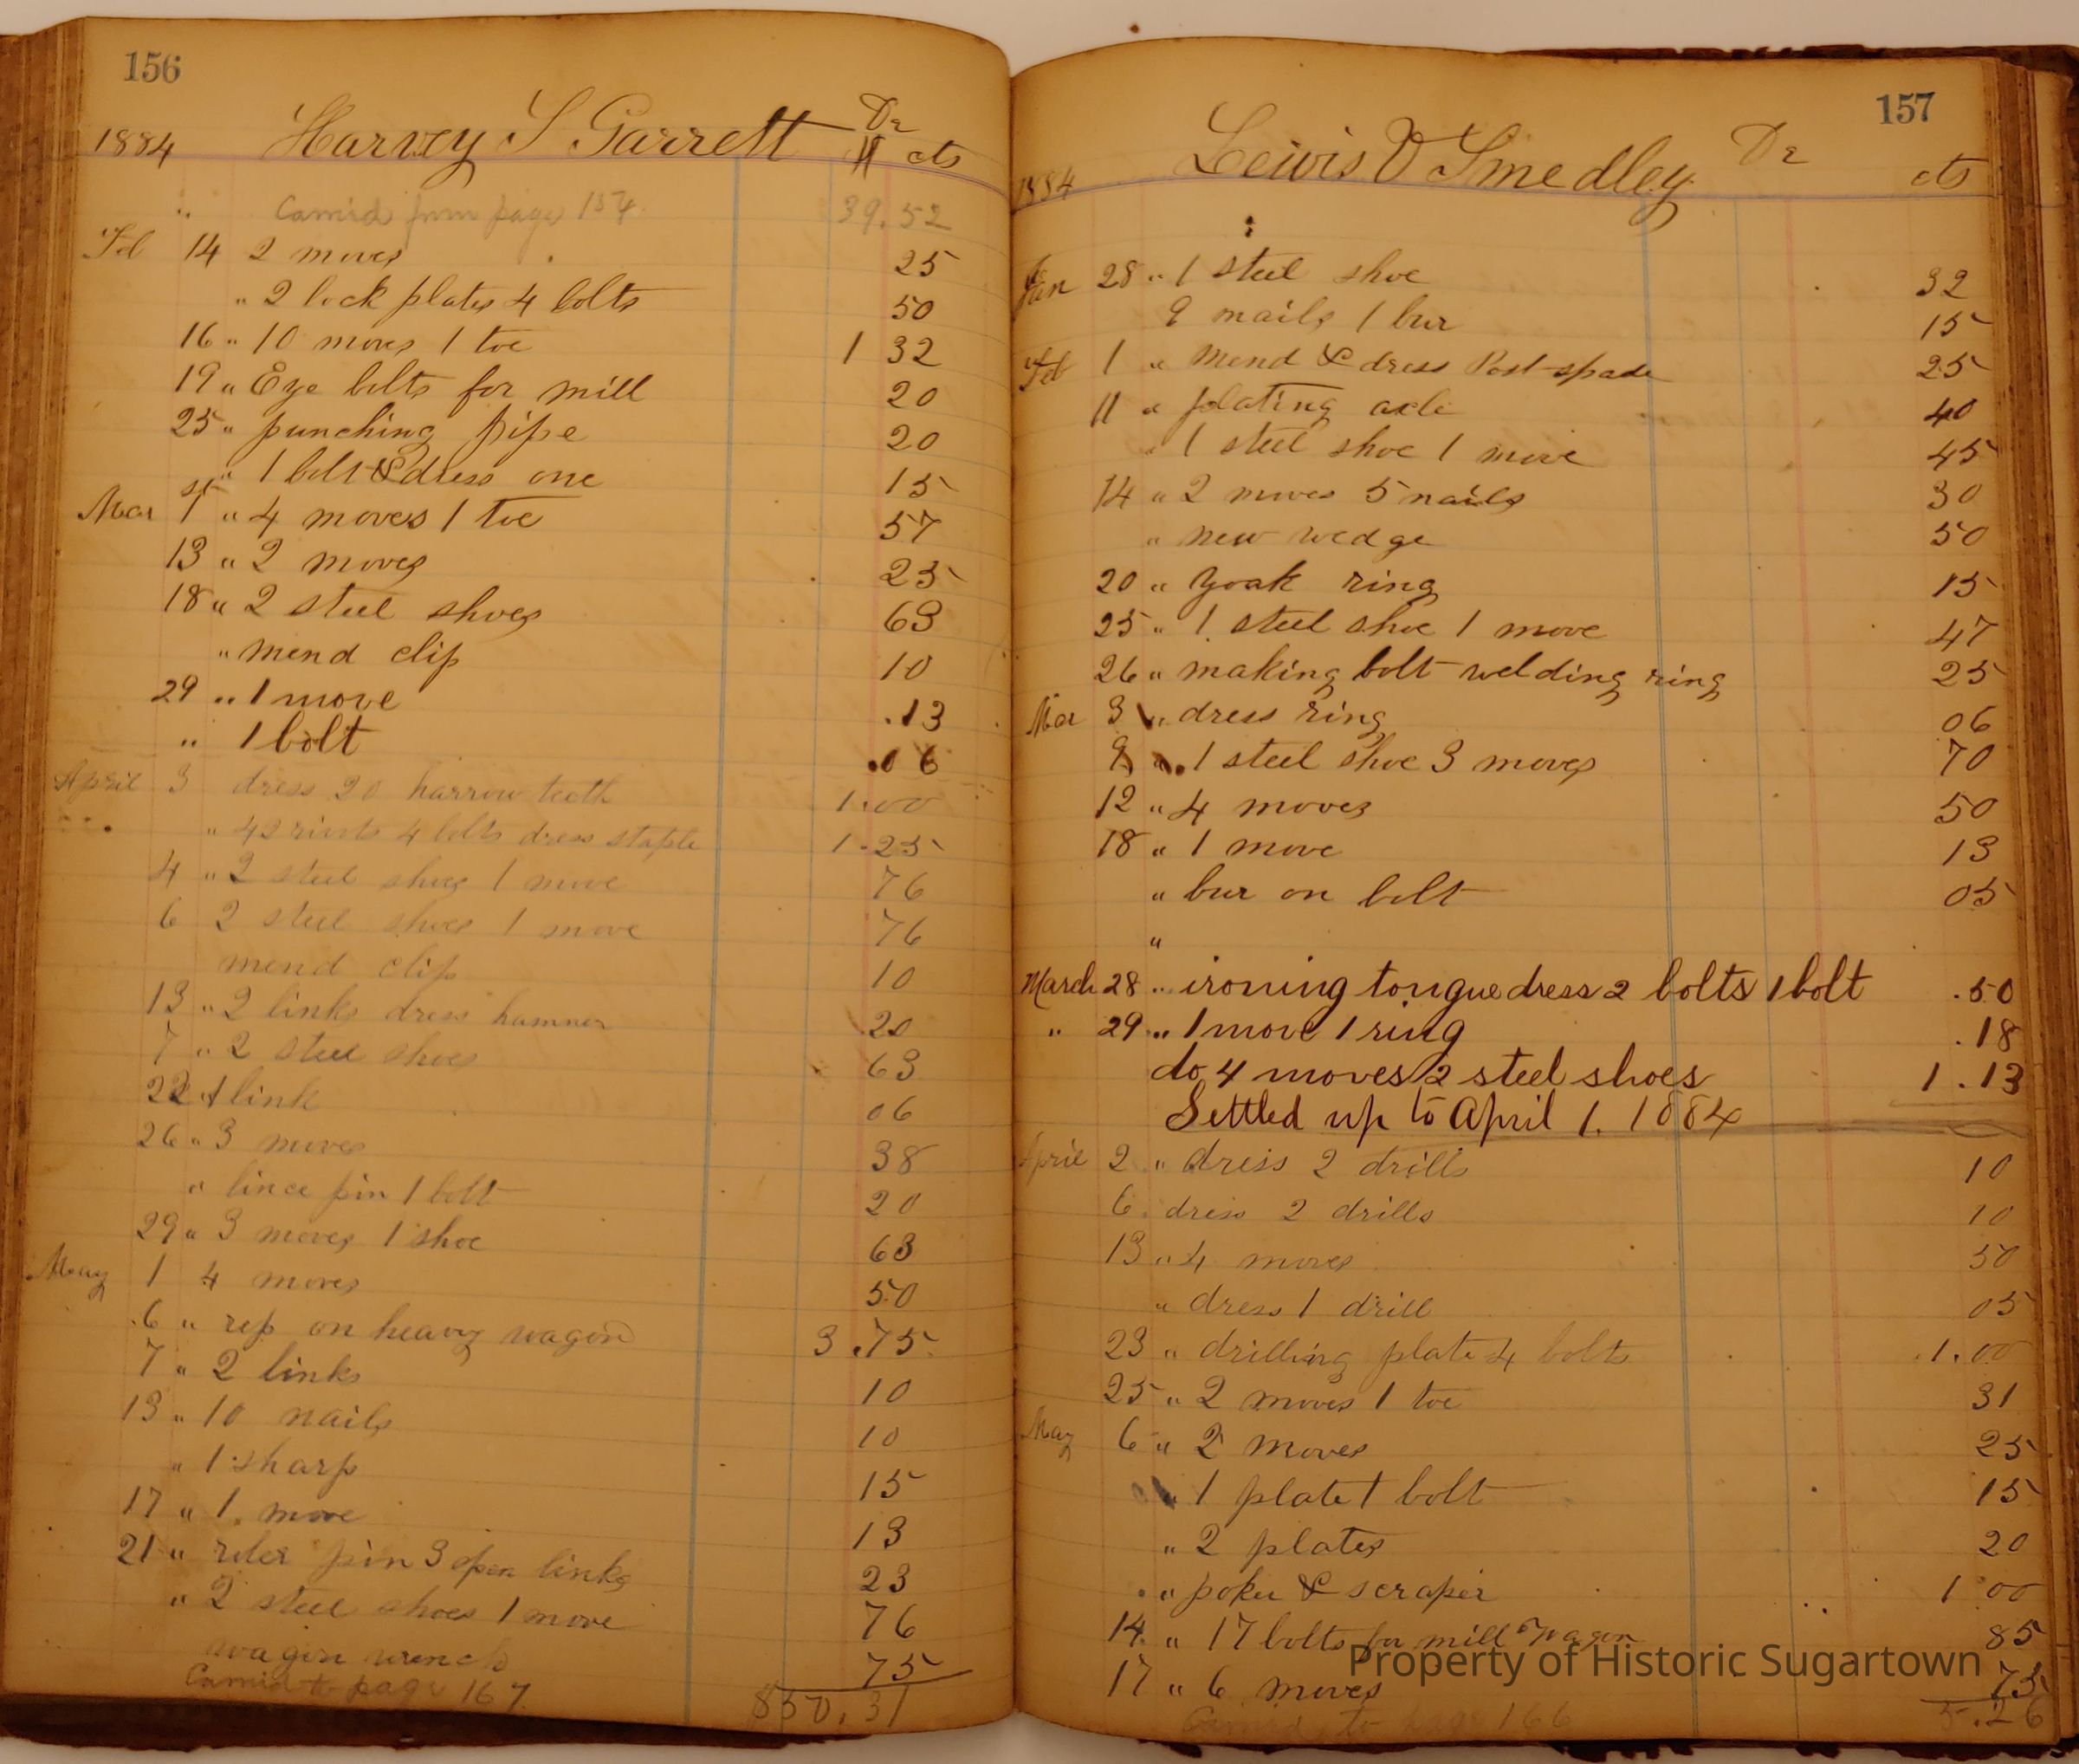 156
1884 Harvey S Garrett Dr
cts
" Carri'd from page 154 39.52
Feb 14 2 moves 25
" 2 lock plates 4 bolts 50
16 " 10 moves 1 toe 1 32
19 " Eye bolts for mill 20
25 " punching pipe 20
" 1 bolt & dress one 15
Mar 1st " 4 moves 1 toe 57
13 " 2 moves 25
18 " 2 steel shoes 63
" mend clip 10
29 " 1 move .13
" 1 bolt .06
April 3 dress 20 harrow teeth 1.00
" rivits 4 bolts dress staple 1.25
4 " 2 steel shoes 1 move 76
6 2 steel shoes 1 move 76
mend clip 10
13 " 2 links dress hammer 20
7 " 2 steel shoes 63
22 1 link 06
26 " 3 moves 38
" lince pin 1 bolt 20
29 " 3 moves 1 shoe 63
May 1 4 moves 50
6 " rep on heavy wagon 3.75
7 " 2 links 10
13 " 10 nails 10
" 1 sharp 15
17 " 1 move 13
21 " pin 3 open links 23
" 2 steel shoes 1 move 76
wagon wrench 75
Carri'd to page 167
157
1884 Lewis V Smedley Dr
cts
Jan 28 " 1 steel shoe 32
9 nails 1 bur 15
Feb 1 " mend & dress Post spade 25
11 " plating axle 40
" 1 steel shoe 1 move 45
14 " 2 moves 5 nails 30
" new wedge 50
20 " Yoak ring 15
25 " 1 steel shoe 1 move 47
26 " making bolt welding ring 25
Mar 3 " dress ring 06
9 " 1 steel shoe 3 moves 70
12 " 4 moves 50
18 " 1 move 13
" bur on bolt 05
"
March 28 " ironing tongue dress 2 bolts 1 bolt .50
" 29 " 1 move 1 ring .18
do 4 moves 2 steel shoes 1.13
Settled up to April 1. 1884
April 2 " dress 2 drills 10
6 dress 2 drills 10
13 " 4 moves 50
" dress 1 drill 05
23 " drilling plate 4 bolts 1.00
25 " 2 moves 1 toe 31
May 6 " 2 moves 25
" 1 plate 1 bolt 15
" 2 plates 20
" poker & scraper 1 00
14 " 17 bolts for mill Wagon 85
17 " 6 moves 75
Carri'd to page 166 5.26
Property of Historic Sugartown